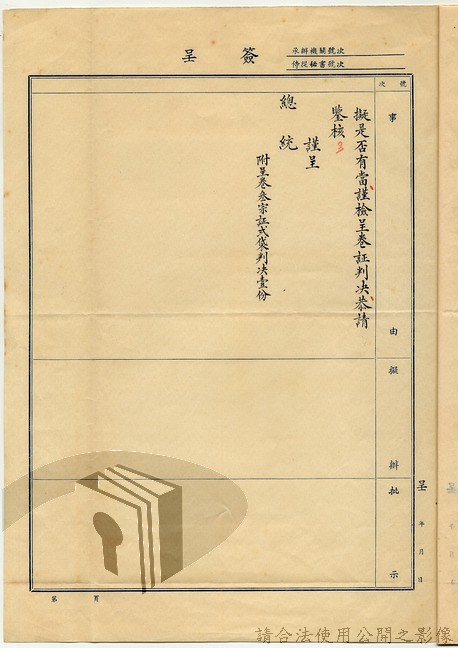 簽呈
承辦機關號次
侍從秘書號次
號次
事由
擬是否有當謹檢呈卷証判决恭請
鑒核
謹呈
總統
附呈卷叁宗証弍袋判决壹份
擬辦
批示
呈 年 月 日
第 頁
請合法使用公開之影像